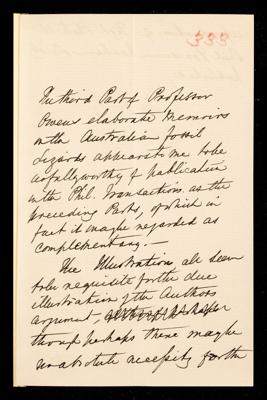 333
The third Part of Professor
Owen's elaborate Memoirs
on the Australian fossil
Lizards appears to me to be
as fully worthy of publication
in the Phil. Transactions as the
preceding Parts, of which in
fact it may be regarded as
complementary.—
The Illustrations all seem
to be requisite for the due
illustration of the Authors
argument,
though perhaps there may be
no absolute necessity for the